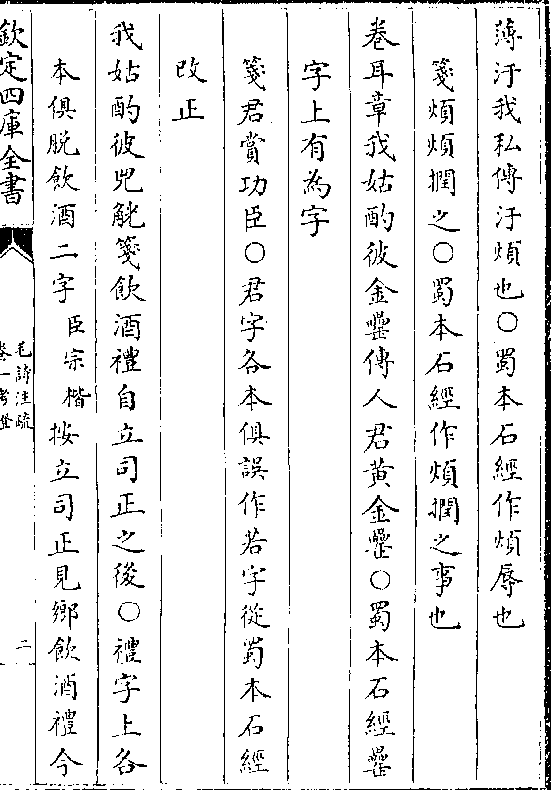 薄汙我私傳汙煩也○蜀本石經作煩辱也
箋煩煩撋之○蜀本石經作煩撋之事也
卷耳章我姑酌彼金罍傳人君黄金罍○蜀本石經罍
字上有為字
箋君賞功臣○君字各本俱誤作若字從蜀本石經
改正
我姑酌彼兕觥箋飲酒禮自立司正之後○禮字上各
本俱脱飲酒二字臣宗楷按立司正見鄉飲酒禮今
欽定四庫全書
毛詩注疏
卷一考證
二